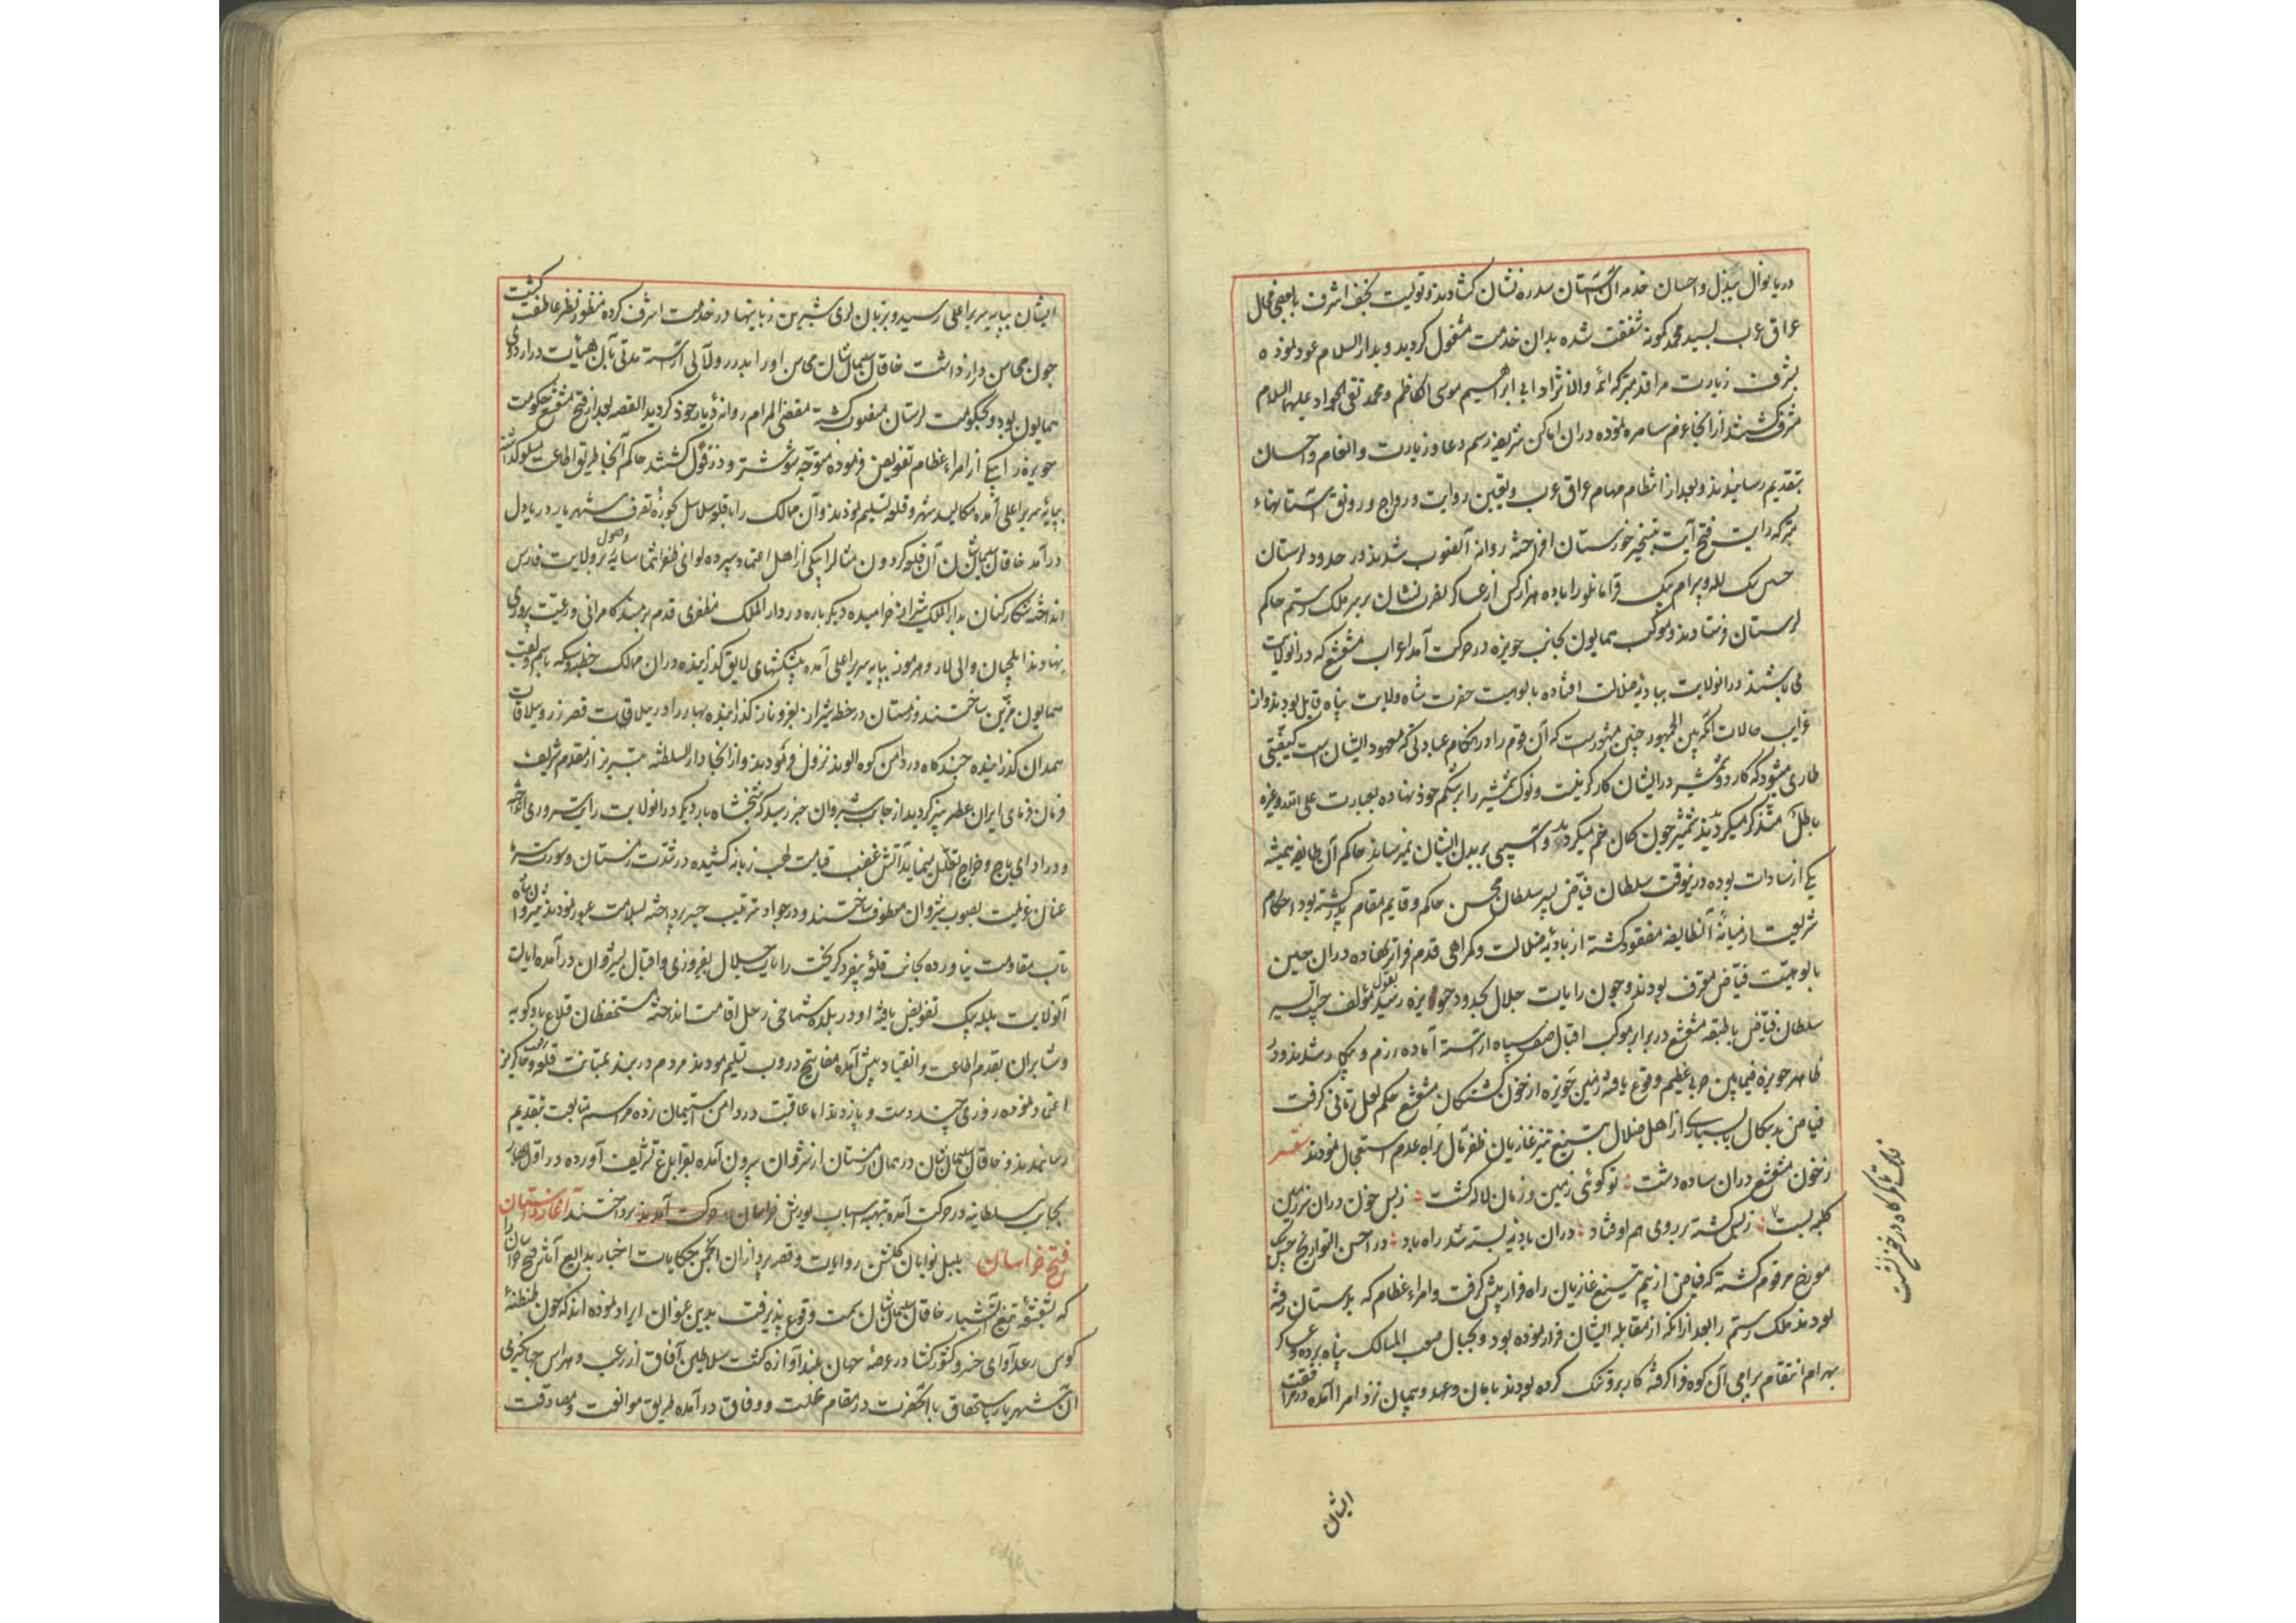 دریا نوال ببذل و احسان خدمه آن آستان سدره نشان کشادند و تولیت نجف اشرف با بعضی محال
عراق عرب بسید محمد کمونه شفقت شده بدان خدمت مشغول کردید و بدار السلام عود نموده
بشرف زیارت مراقد متبرکه ائمه والانژاد ابی ابراهیم موسی الکاظم و محمد تقی الجواد علیهما السلام
مشرف کشتند از آنجا عزم سامره نموده در ان اماکن شریفه رسم دعا و زیارت و انعام و احسان
بتقدیم رسانیدند و بعد از انتظام مهام عراق عرب و تعیین روایت و رواج و رونق آستانهاء
متبرکه رایت فتح آیت بتسخیر خوزستان افراخته روانه آنصوب شدند در حدود لرستان
حسین بیک لله و بیرام بیک قرامانلو را با ده هزار کس از عساکر نصرت نشان بر سر ملک رستم حاکم
لرستان فرستادند و موکب همایون بجانب حویزه در حرکت آمد اعراب مشعشع که در انولایت
می باشند در انولایت ببادیه ضلالت افتاده بالوهیت حضرت شاه ولایت پناه قایل بودند و از
غرایب حالات آنکه بین الجمهور چنین مشهورست که آن قوم را در هنکام عبادتی که معهود ایشان است کیفیتی
طاری میشود که کارد و شمشیر در ایشان کار کر نیست و نوک شمشیر را بر شکم خود نهاده بعبارت علی الله و غیره
باطله متذکر میکردیدند شمشیر چون کمان خم میکردید و آسیبی ببدن ایشان نمیرساند حاکم آن طایفه همیشه
یکی از سادات بوده درینوقت سلطان فیاض پسر سلطان محسن حاکم و قایم مقام پدر کشته بود احکام
شریعت از میانه آنطایفه مفقود کشته از بادیه ضلالت و کمراهی قدم فراتر نهاده در ان حین
بالوهیت فیاض معترف بودند و چون رایات جلال بحدود حویزه رسید بقول مؤلف حبیب السیر
سلطان فیاض با طبقه مشعشع در برابر موکب اقبال صف سپاه اراسته آماده رزم و پیکار شدند و در
ظاهر حویزه فیمابین حربی عظیم وقوع یافته زمین حویزه از خون کشتکان مشعشع حکم لعل رمانی کرفت
فیاض بدسکال با بسیاری از اهل ضلال بتیغ تیز غازیان ظفر مآل براه عدم استعجال نمودند شعر
ز خون مشعشع دران ساده دشت تو کوئی زمین و زمان لاله کشت ز بس خون دران سرزمین
کلبه بست ز بس کشته بر روی هم اوفتاد دران بادیه بسته شد راه باد در احسن التواریخ حسن بیک
مورخ مرقوم کشته که فیاض از بیم تیغ غازیان راه فرار پیش کرفت و امراء عظام که بلرستان رفته
بودند ملک رستم را بعد از آنکه از مقابله ایشان فرار نموده بود و بجبال صعب المسالک پناه برده عساکر
بهرام انتقام پیرامن آن کوه فرا کرفته کار برو تنک کرده بودند بامان و عهد و پیمان نزد امرا آمده در مرافقت
ایشان
ایشان بپایه سریر اعلی رسید و بزبان لری شیرین زبانیها در خدمت اشرف کرده منظور نظر عاطفت کشت
چون محاسن دراز داشت خاقان سلیمان شان محاسن او را بدرر و لآلی آراسته مدتی بآن هیئات در اردوی
همایون بود و بحکومت لرستان مفوض کشته مقضی المرام روانه دیار خود کردید القصه بعد از فتح مشعشع حکومت
حویزه را بیکی از امراء عظام تفویض فرموده متوجه شوشتر و دزفول کشتند حاکم آنجا طریق اطاعت مسلوک داشته
بپایه سریر اعلی آمده مکالید شهر و قلعه تسلیم نمودند و آن ممالک را با قلعه سلاسل بحوزه تصرف شهریار دریادل
درآمد خاقان سلیمان شان آن قلعه کردون مثال را بیکی از اهل اعتماد سپرده لوای ظفر انتما سایه وصول بر ولایت فارس
انداخته شکار کنان بدار الملک شیراز خرامیده دیکر باره در دار الملک مظفری قدم بر مسند کامرانی و رعیت پروری
نهادند ایلچیان والی لار و هرموز بپایه سریر اعلی آمده پیشکشهای لایق کذرانیده دران ممالک خطبه و سکه باسم و لقب
همایون مزین ساختند و زمستان در خطه شیراز بعز و ناز کذرانیده بهار را در ییلاقات قصر زر و ییلاقات
همدان کذرانیده چند کاه در دامن کوه الوند نزول فرمودند و از آنجا دار السلطنه تبریز از مقدم شریف
فرمان فرمای ایران عطر بیز کردید از جانب شیروان خبر رسید که شیخ شاه بار دیکر در انولایت رایت سروری افراخته
و در ادای باج و خراج تعلل مینماید آتش غضب قیامت لهب زبانه کشیده در شدت زمستان و سورت سرما
عنان عزیمت بصوب شیروان معطوف ساختند و در جواد ترتیب جسر پرداخته بسلامت عبور نمودند شیروان شاه
تاب مقاومت نیاورده بجانب قلعه بیغرد کریخت رایات جلال بفیروزی و اقبال بشیروان درآمده ایالت
آنولایت بلله بیک تفویض یافته او در بلده شماخی رحل اقامت انداخته مستحفظان قلاع بادکوبه
و شابران بقدم اطاعت و انقیاد پیش آمده مفاتیح دروب تسلیم نمودند مردم دربند بمتانت قلعه و خاکریز
اعتماد نموده روزی چند دست و پا زدند اما عاقبت در دامن استیمان زده مراسم متابعت بتقدیم
رسانیدند و خاقان سلیمان شان در همان زمستان از شروان بیرون آمده بقراباغ تشریف آورده در اول بهار
بجانب سلطانیه در حرکت آمده بتهیه اسباب یورش خراسان حرکت آمدند پرداختند آغاز داستان
فتح خراسان بلبل نوایان کلشن روایات و قصه پردازان انجمن حکایات اخبار بدایع آثار فتح خراسان را
که بشعشعه تیغ آتشبار خاقان سلیمان شان سمت وقوع پذیرفت بدین عنوان ایراد نموده اند که چون طنطنه
کوس رعد آوای خسرو کشورکشا در عرصه جهان بلند آوازه کشت سلاطین آفاق از رعب و هراس جهانکیری
آن شهریار باستحقاق با آنحضرت در مقام خلت و وفاق درآمده طریق موافقت و مصادقت